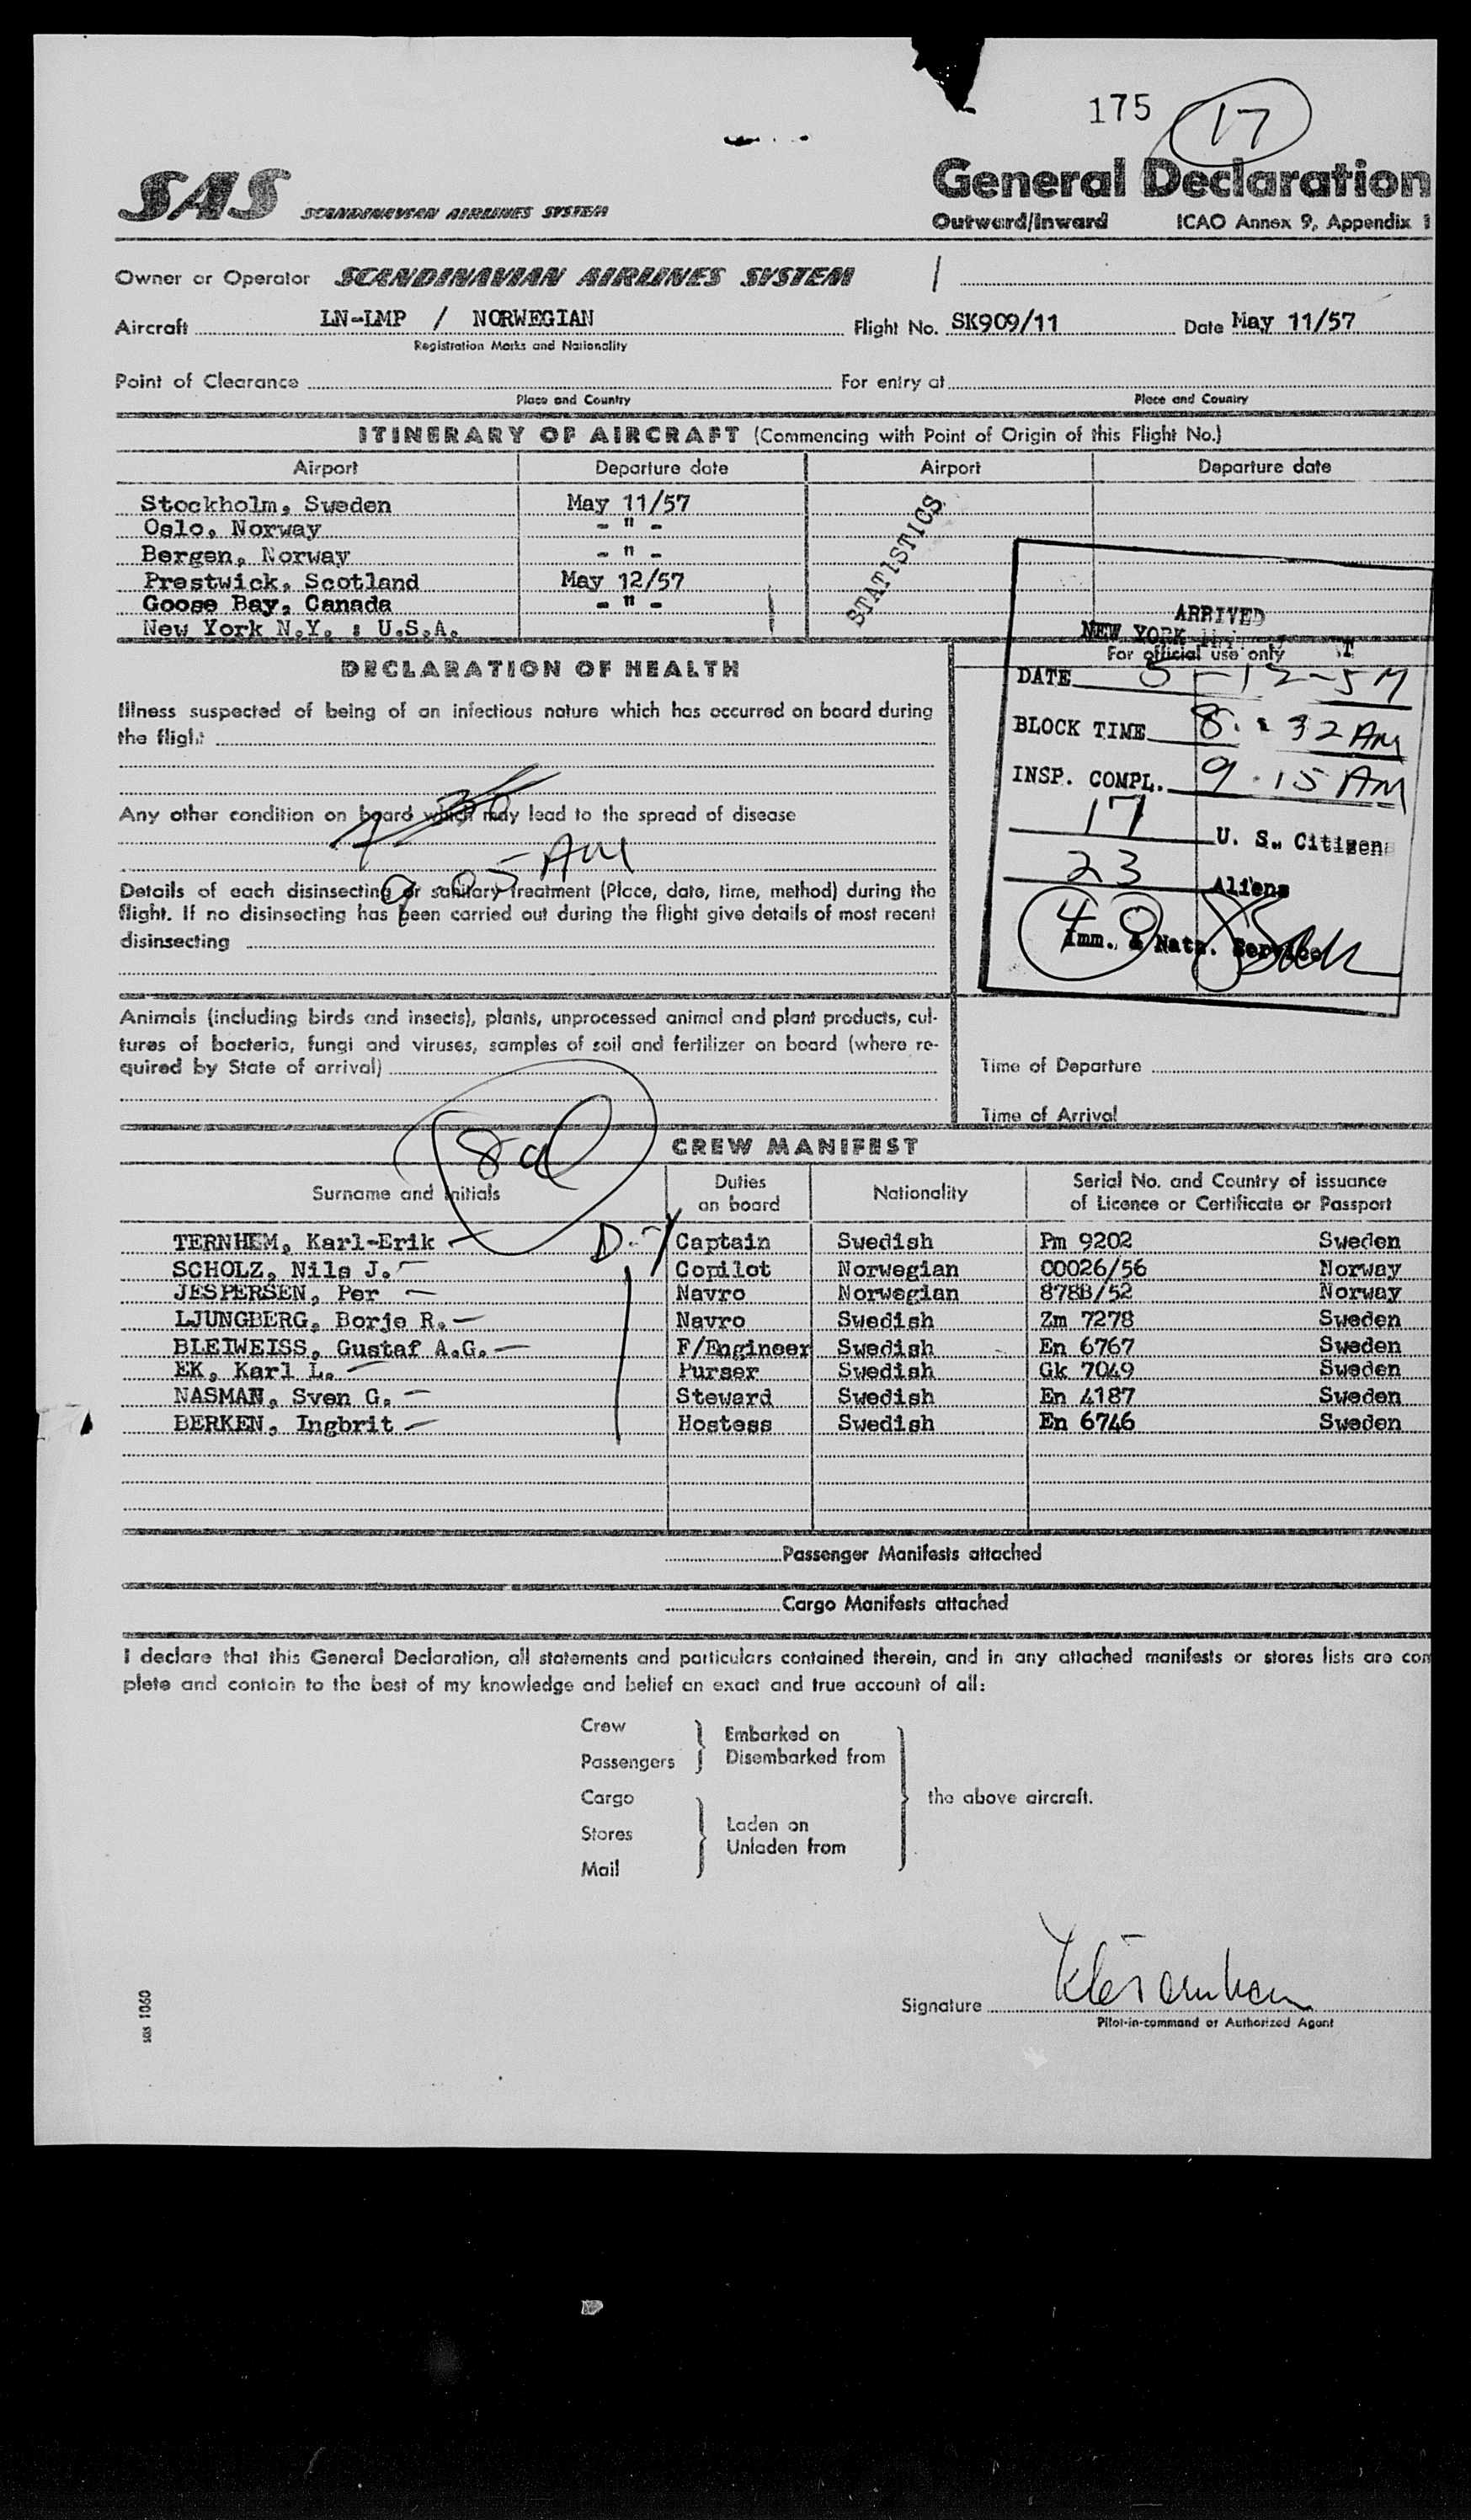 175 17
SAS SCANDINAVIAN AIRLINES SYSTEM
General Declaration
Outward/Inward ICAO Annex 9, Appendix 1
Owner or Operator SCANDINAVIAN AIRLINES SYSTEM
Aircraft LN-LMP / NORWEGIAN Flight No. SK909/11 Date May 11/57
Registration Marks and Nationality
Point of Clearance For entry at
Place and Country Place and Country
ITINERARY OF AIRCRAFT (Commencing with Point of Origin of this Flight No.)
Airport Departure date Airport Departure date
Stockholm, Sweden May 11/57
Oslo, Norway - " -
Bergen, Norway - " -
Prestwick, Scotland May 12/57
Goose Bay, Canada - " -
New York N.Y. : U.S.A.
STATISTICS
DECLARATION OF HEALTH
Illness suspected of being of an infectious nature which has occurred on board during
the flight
Any other condition on board which may lead to the spread of disease
Details of each disinsecting or sanitary treatment (Place, date, time, method) during the
flight. If no disinsecting has been carried out during the flight give details of most recent
disinsecting
Animals (including birds and insects), plants, unprocessed animal and plant products, cul-
tures of bacteria, fungi and viruses, samples of soil and fertilizer on board (where re-
quired by State of arrival)
ARRIVED
NEW YORK
For official use only
DATE 5-12-57
BLOCK TIME 8:32 AM
INSP. COMPL. 9:15 AM
17 U. S. Citizens
23 Aliens
40
Imm. & Natz. Service
Time of Departure
Time of Arrival
CREW MANIFEST
Surname and Initials Duties on board Nationality Serial No. and Country of issuance of Licence or Certificate or Passport
TERNHEM, Karl-Erik Captain Swedish Pm 9202 Sweden
SCHOLZ, Nils J. Copilot Norwegian 00026/56 Norway
JESPERSEN, Per Navro Norwegian 878B/52 Norway
LJUNGBERG, Borje R. Navro Swedish Zm 7278 Sweden
BLEIWEISS, Gustaf A.G. F/Engineer Swedish En 6767 Sweden
EK, Karl L. Purser Swedish Gk 7049 Sweden
NASMAN, Sven G. Steward Swedish En 4187 Sweden
BERKEN, Ingbrit Hostess Swedish En 6746 Sweden
Passenger Manifests attached
Cargo Manifests attached
I declare that this General Declaration, all statements and particulars contained therein, and in any attached manifests or stores lists are com
plete and contain to the best of my knowledge and belief an exact and true account of all:
Crew
Passengers
Embarked on
Disembarked from
Cargo
Stores
Mail
Laden on
Unladen from
the above aircraft.
Signature
Pilot-in-command or Authorized Agent
sas 1060